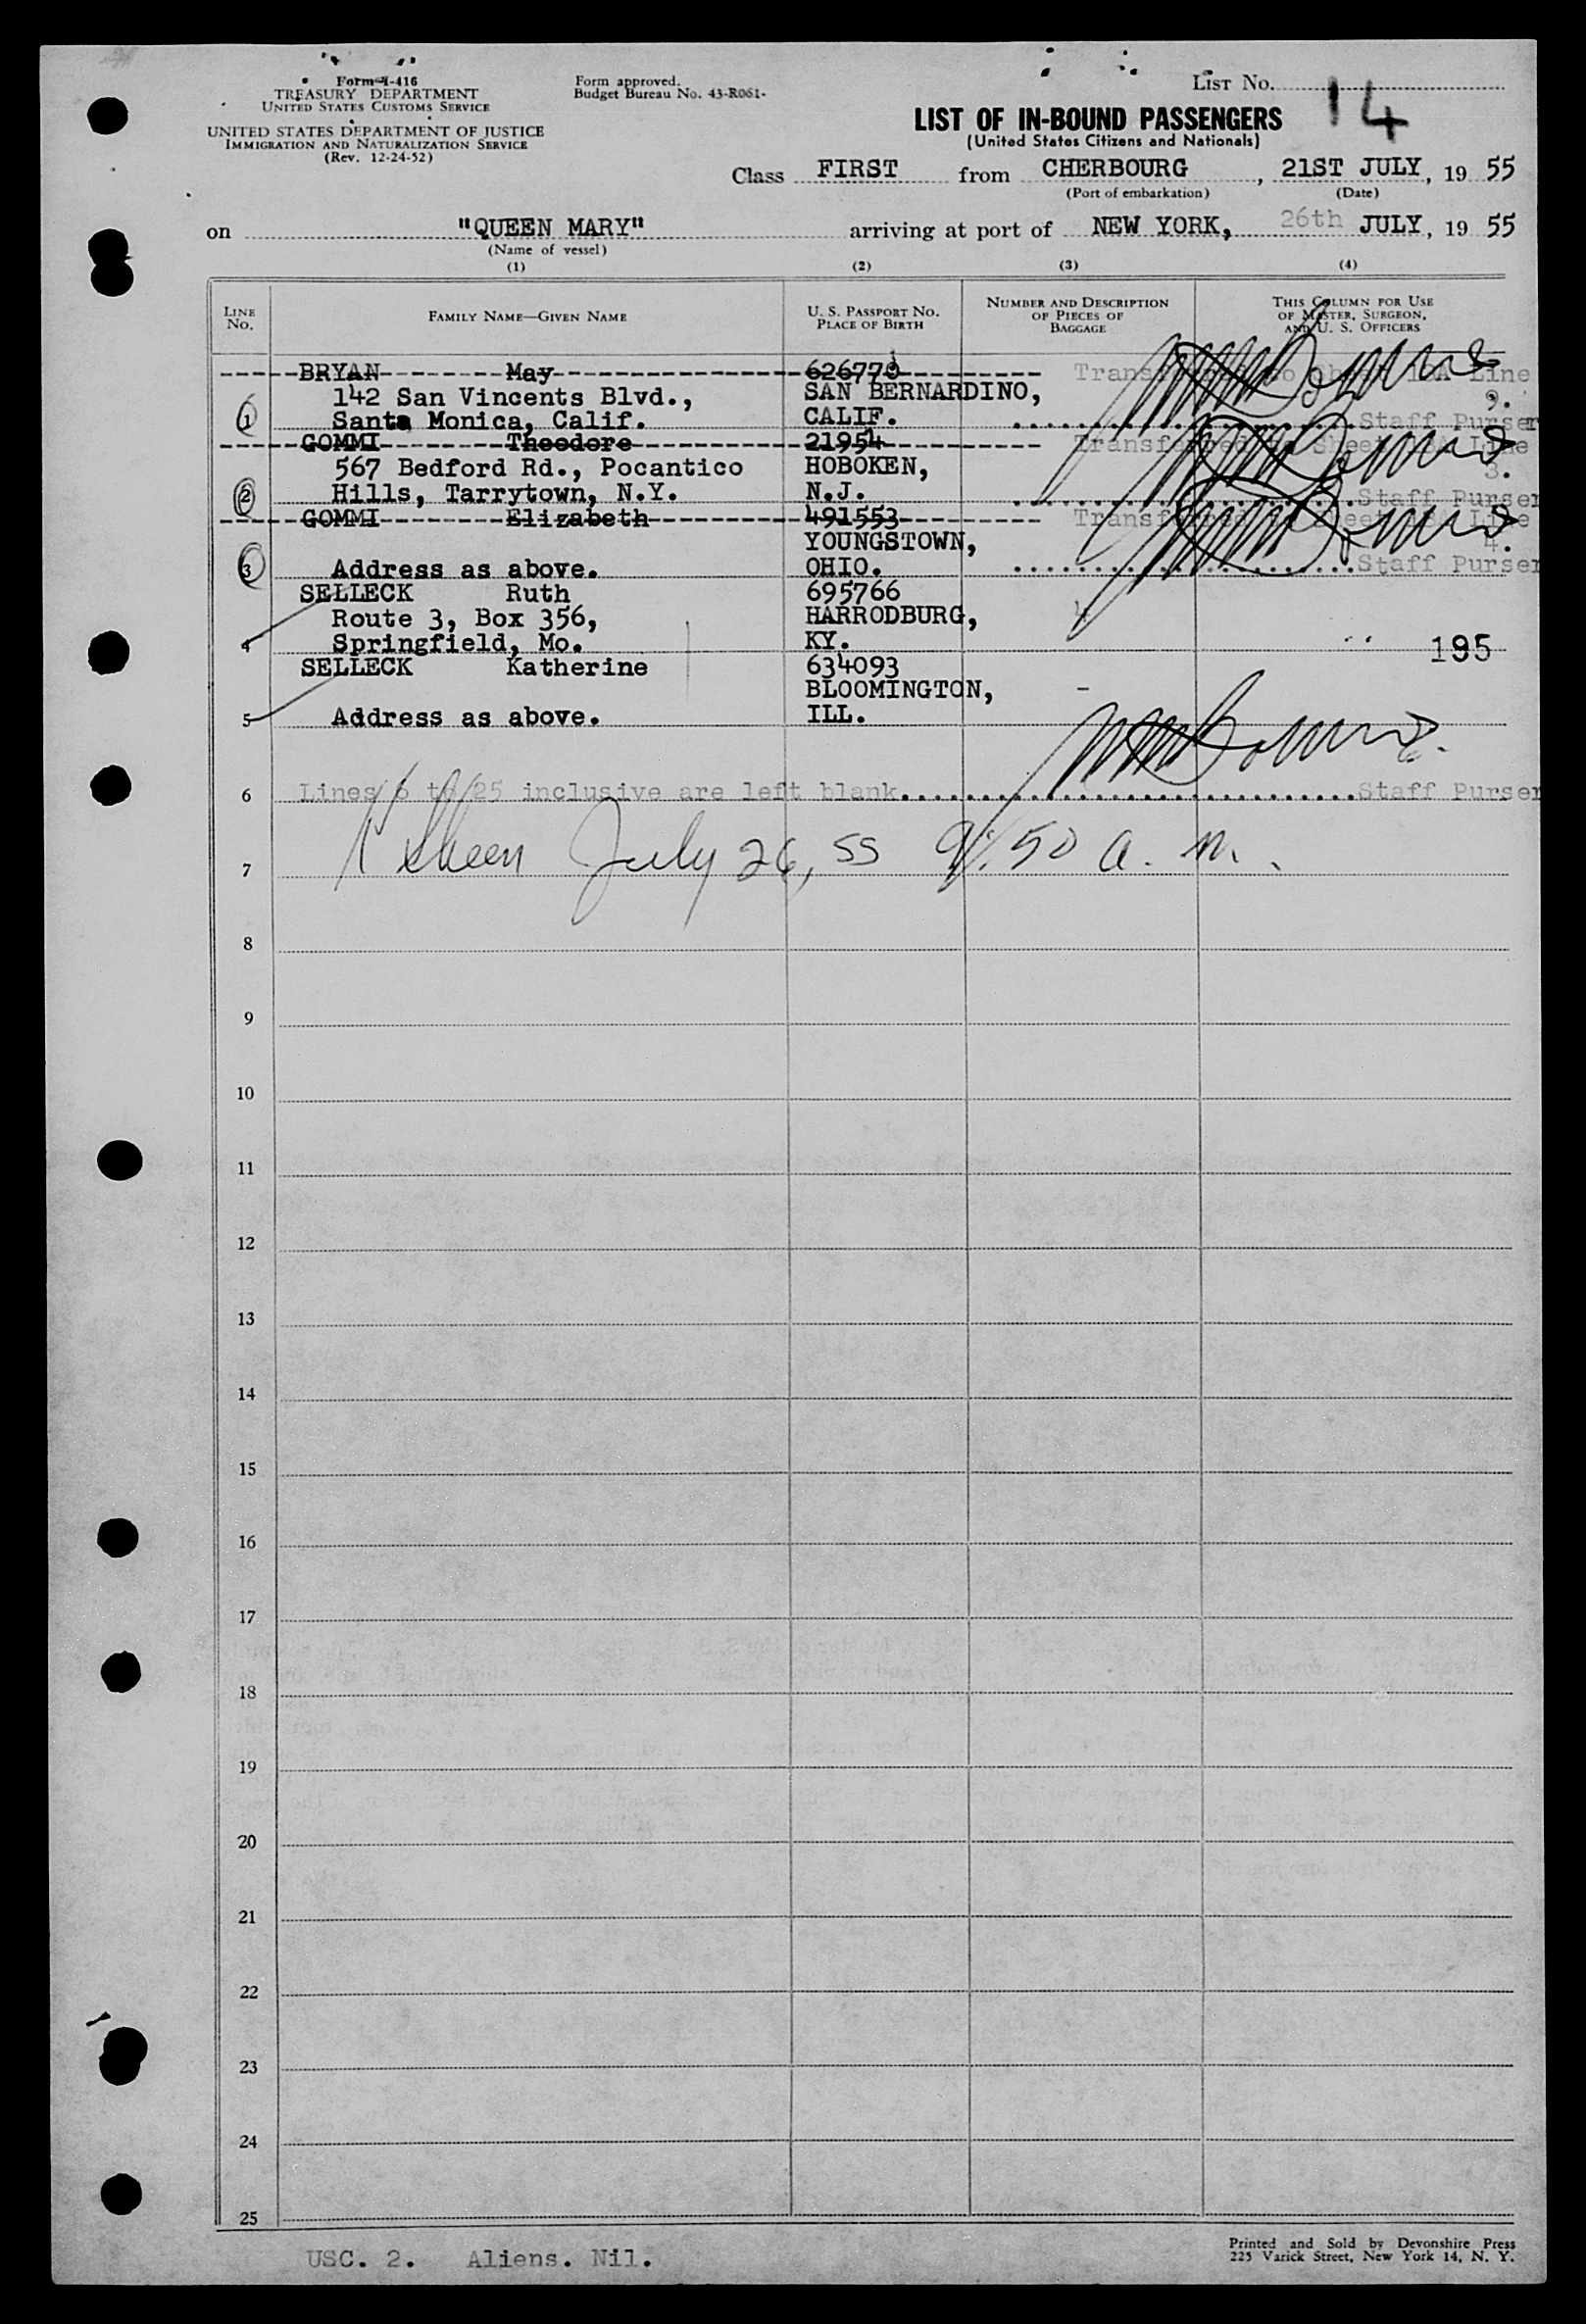 Form I-416
TREASURY DEPARTMENT
UNITED STATES CUSTOMS SERVICE
UNITED STATES DEPARTMENT OF JUSTICE
IMMIGRATION AND NATURALIZATION SERVICE
(Rev. 12-24-52)
Form approved.
Budget Bureau No. 43-R061-
LIST No. 14
LIST OF IN-BOUND PASSENGERS
(United States Citizens and Nationals)
Class FIRST from CHERBOURG, 21ST JULY, 19 55
(Port of embarkation) (Date)
on "QUEEN MARY" arriving at port of NEW YORK, 26th JULY, 19 55
(Name of vessel)
(1) (2) (3) (4)
LINE No. FAMILY NAME—GIVEN NAME U. S. PASSPORT NO. PLACE OF BIRTH NUMBER AND DESCRIPTION OF PIECES OF BAGGAGE THIS COLUMN FOR USE OF MASTER, SURGEON, AND U. S. OFFICERS
BRYAN May 626770 Line
142 San Vincents Blvd., SAN BERNARDINO, 9.
1 Santa Monica, Calif. CALIF. Staff Purser
GOMMI Theodore 21954 Transferred to Sheet Line
567 Bedford Rd., Pocantico HOBOKEN, 3.
2 Hills, Tarrytown, N.Y. N.J. Staff Purser
GOMMI Elizabeth 491553 Transferred Sheet Line
YOUNGSTOWN, 4.
3 Address as above. OHIO. Staff Purser
SELLECK Ruth 695766
Route 3, Box 356, HARRODBURG, 4
4 Springfield, Mo. KY. 195
SELLECK Katherine 634093
BLOOMINGTON, -
5 Address as above. ILL.
6 Lines 6 to 25 inclusive are left blank. Staff Purser
7 July 26, 55 9:50 a. m.
8
9
10
11
12
13
14
15
16
17
18
19
20
21
22
23
24
25
USC. 2. Aliens. Nil.
Printed and Sold by Devonshire Press
225 Varick Street, New York 14, N. Y.